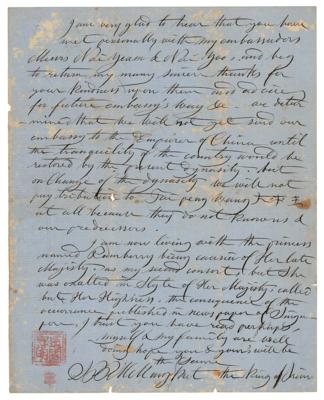 I am very glad to hear that you have
met personally with my embassadors
Messrs N. Di Yaam & N. Di Yoo, and beg
to return my many sincere thanks for
your kindness upon them and advice
for future embassy's way &c. we deter
mined that we will not yet send our
embassy to the Emperor of China until
the tranquility of the country would be
restored by the present dynasity. but
on change of the dynasity we will not
pay tribution to Tae peng wang
at all because they do not know us &
our predicessors.
I am now living with the princess
named Rumberry being causin of Her late
Majesty. as my second consort, but She
was exalted in Style of Her Majesty, called
but Her Highness, the consequence of the
occurrance published in newspaper of Singa
pore, I trust you have read perhaps,
myself & my family are well
hope you & yours will be
the same
the King of Siam